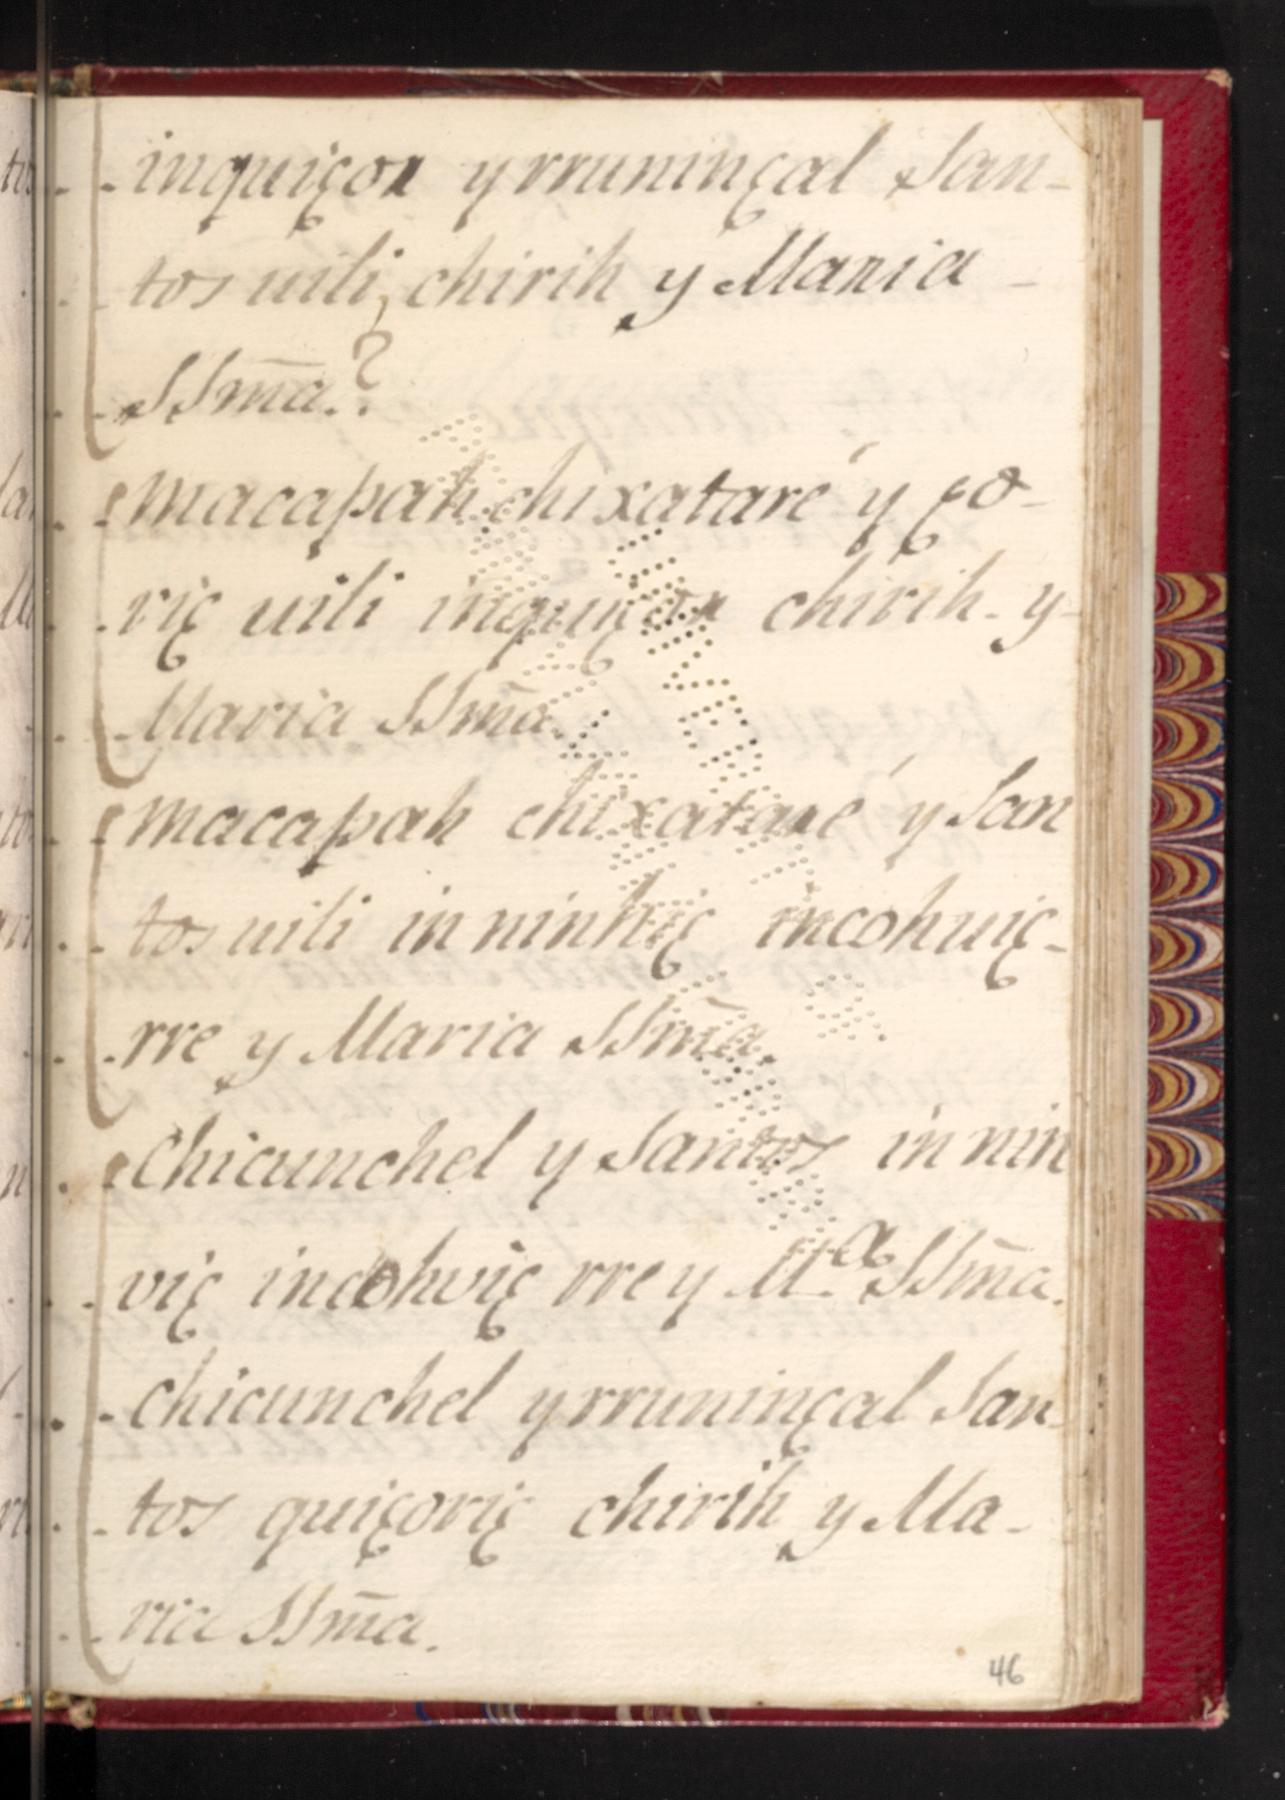 inquiçox yrruninçal San-
tos uili, chirih y Maria -
SSm̄a.?
macapah chixataré y ço-
riç uili inquiçox chirih y-
Maria SSm̄a.
macapah chixataré y San
tos uili in ninhiç incohuiç-
rre y Maria SSm̄a.
Chicunchel y Santos in nin
viç incohviç rre y M.ª SSm̄a.
chicunchel yrruninçal San-
tos quiçoriç chirih y Ma-
ria SSm̄a.
46